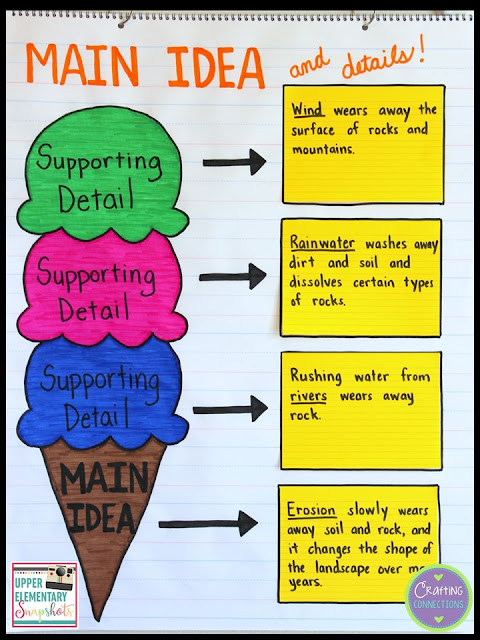 MAIN IDEA and details!
Supporting
Detail
Wind wears away the
surface of rocks and
mountains.
Supporting
Detail
Rainwater washes away
dirt and soil and
dissolves certain types
of rocks.
Supporting
Detail
Rushing water from
rivers wears away
rock.
MAIN
IDEA
Erosion slowly wears
away soil and rock, and
it changes the shape of
the landscape over
years.
UPPER
ELEMENTARY
Snapshots
Crafting
CONNECTIONS